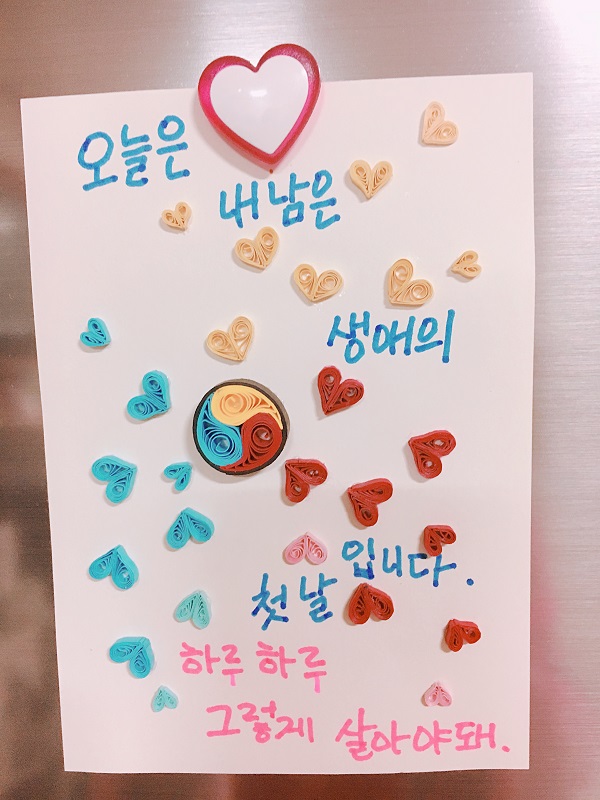 오늘은
내 남은
생애의
첫날 입니다.
하루 하루
그렇게 살아야돼.